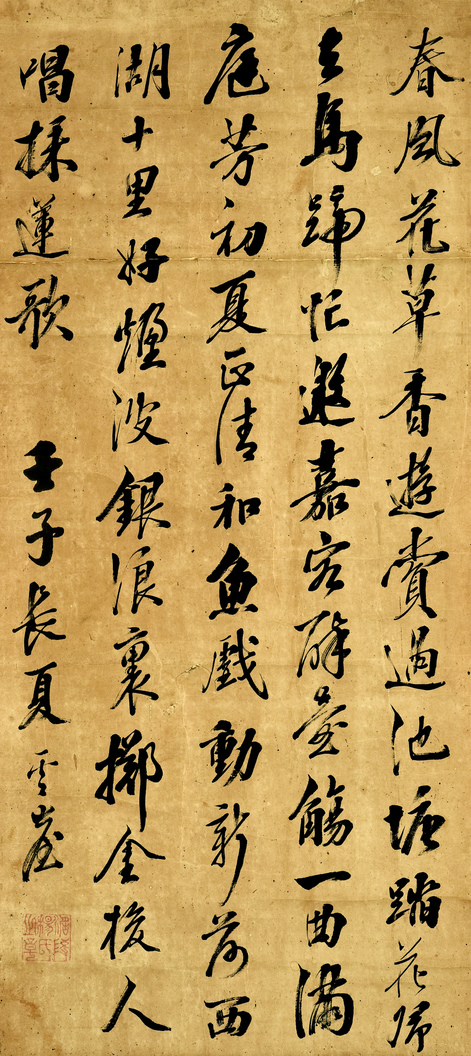 春風花草香遊賞過池塘踏花歸
去馬蹄忙邀嘉客醉壺觴一曲滿
庭芳初夏正清和魚戲動新荷西
湖十里好煙波銀浪裏擲金梭人
唱採蓮歌 壬子長夏雲崖